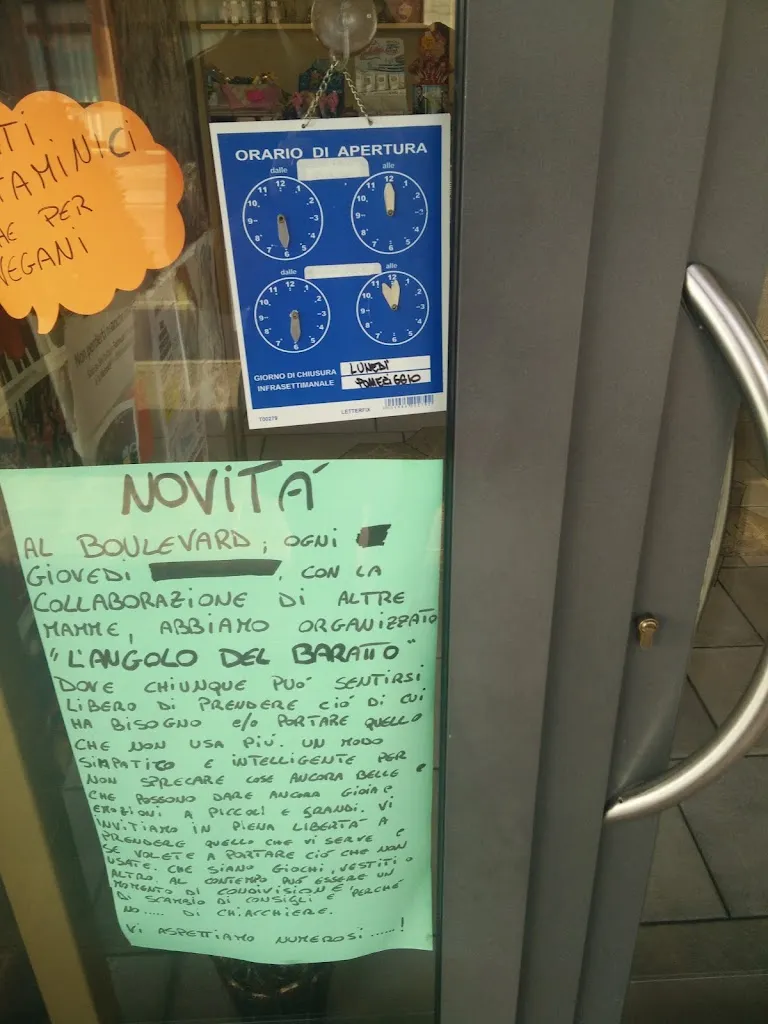 TI
TAMINICI
HE PER
VEGANI
ORARIO DI APERTURA
dalle alle
dalle alle
GIORNO DI CHIUSURA
INFRASETTIMANALE
LUNEDI
POMERIGGIO
LETTERFIX
NOVITA'
AL BOULEVARD, OGNI
GIOVEDI , CON LA
COLLABORAZIONE DI ALTRE
MAMME, ABBIAMO ORGANIZZATO
"L'ANGOLO DEL BARATTO"
DOVE CHIUNQUE PUO' SENTIRSI
LIBERO DI PRENDERE CIO' DI CUI
HA BISOGNO E/O PORTARE QUELLO
CHE NON USA PIU'. UN MODO
SIMPATICO E INTELLIGENTE PER
NON SPRECARE COSE ANCORA BELLE E
CHE POSSONO DARE ANCORA GIOIA E
EMOZIONI A PICCOLI E GRANDI. VI
INVITIAMO IN PIENA LIBERTA' A
PRENDERE QUELLO CHE VI SERVE E
SE VOLETE A PORTARE CIO' CHE NON
USATE. CHE SIANO GIOCHI, VESTITI O
ALTRO. AL CONTEMPO PUO' ESSERE UN
MOMENTO DI CONDIVISIONE,
DI SCAMBIO DI CONSIGLI E PERCHE'
NO..... DI CHIACCHIERE.
VI ASPETTIAMO NUMEROSI......!